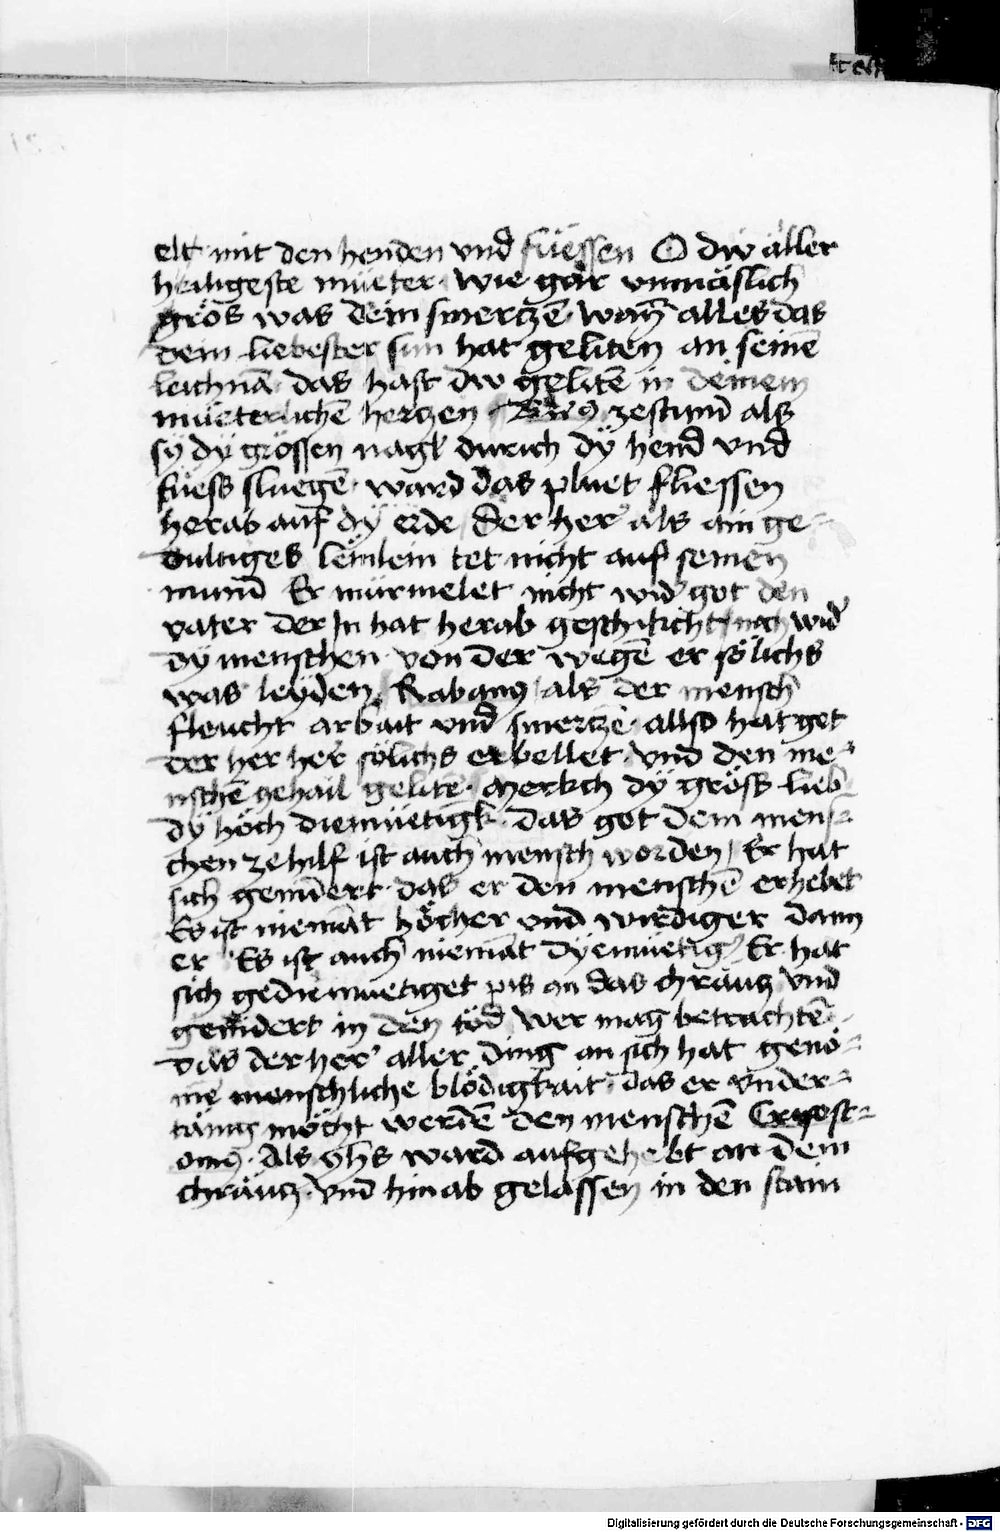 elt mit den henden vnd füessen O dw aller
heiligeste müeter wie gar vnmäslich
grös was dein smerczē wan̄ alles das
dein liebester sun hat geliten an seinē
leichnā das hast dw gelitē in deinem
müeterlichē herczen zestund als
sy dy grössen nagl durich dÿ hend vnd
füess sluegē ward das pluet fliessen
herab auf dÿ erde Der her als ain ge⸗
dultiges lemlein tet nicht auf seinen
mund Er mürmelet nicht wid got den
vater der In hat herab geschikcht noch wid
dÿ menschen von der wegē er sölichs
was leyden Rabanꝰ als der mensch
fleucht arbait vnd smerczē allso hat got
der her her sölichs erbellet vnd den me⸗
nschē ze hail gelitē Merkch dÿ gröss lieb
dÿ höch diemüetigk das got dem mens⸗
chen ze hilf ist auch mensch worden Er hat
sich gemīdert das er den menschē erhebet
Es ist niemāt höcher vnd wirdiger dann
er Es ist auch niemāt dyemuetigꝰ Er hat
sich gediemuetiget pis an das chräutz vnd
gemīdert in den töd wer mag betrachtē
das der her aller ding an sich hat genö⸗
mē menschliche blödigkait das er vnder⸗
tänig möcht werdē den menschē Crisost⸗
omꝰ Als Ihs ward aufgehebt an dem
chräutz vnd hinab gelassen in den stain
Digitalisierung gefördert durch die Deutsche Forschungsgemeinschaft - DFG